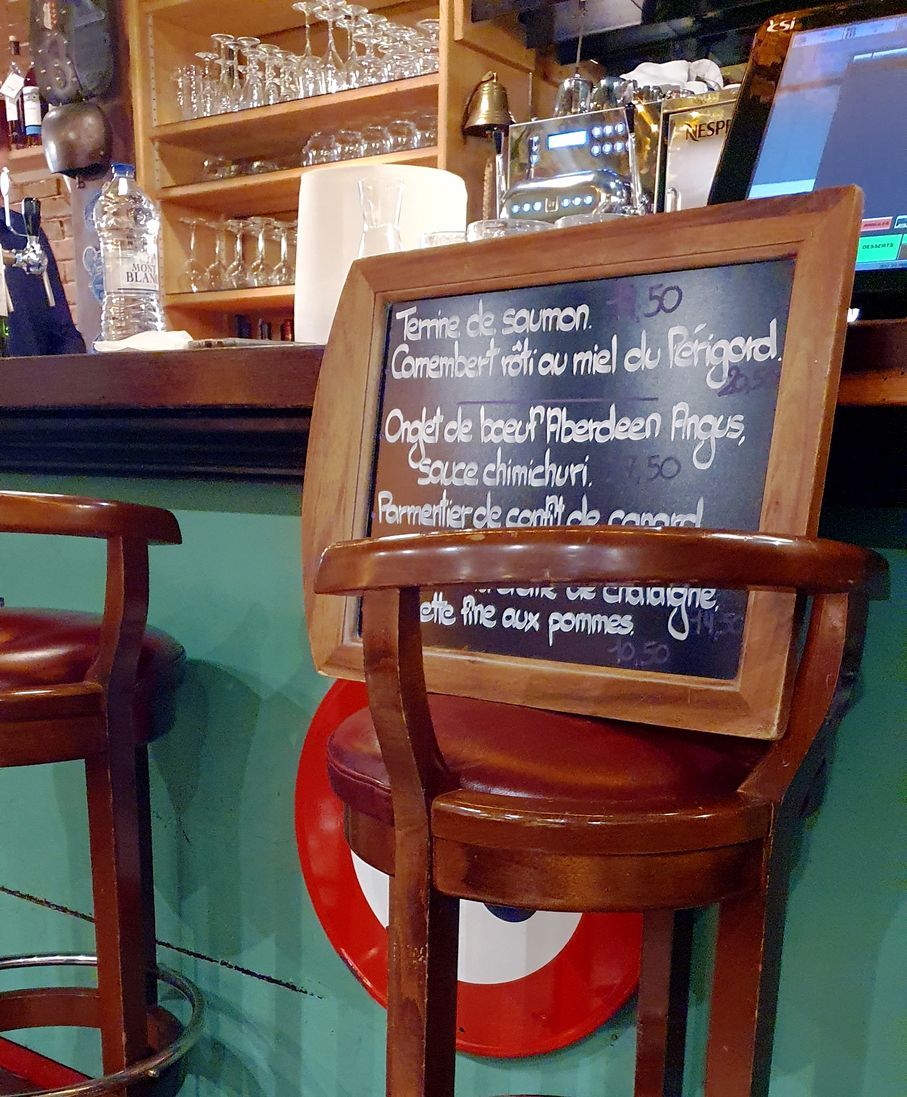 esi
NESP
DESSERTS
MONT
BLAN
Terrine de saumon. 50
Camembert rôti au miel du Périgord.
20,50
Onglet de bœuf Aberdeen Angus,
sauce chimichuri. 7,50
Parmentier de confit de canard
de chataîgne.
ette fine aux pommes. 14,50
10,50